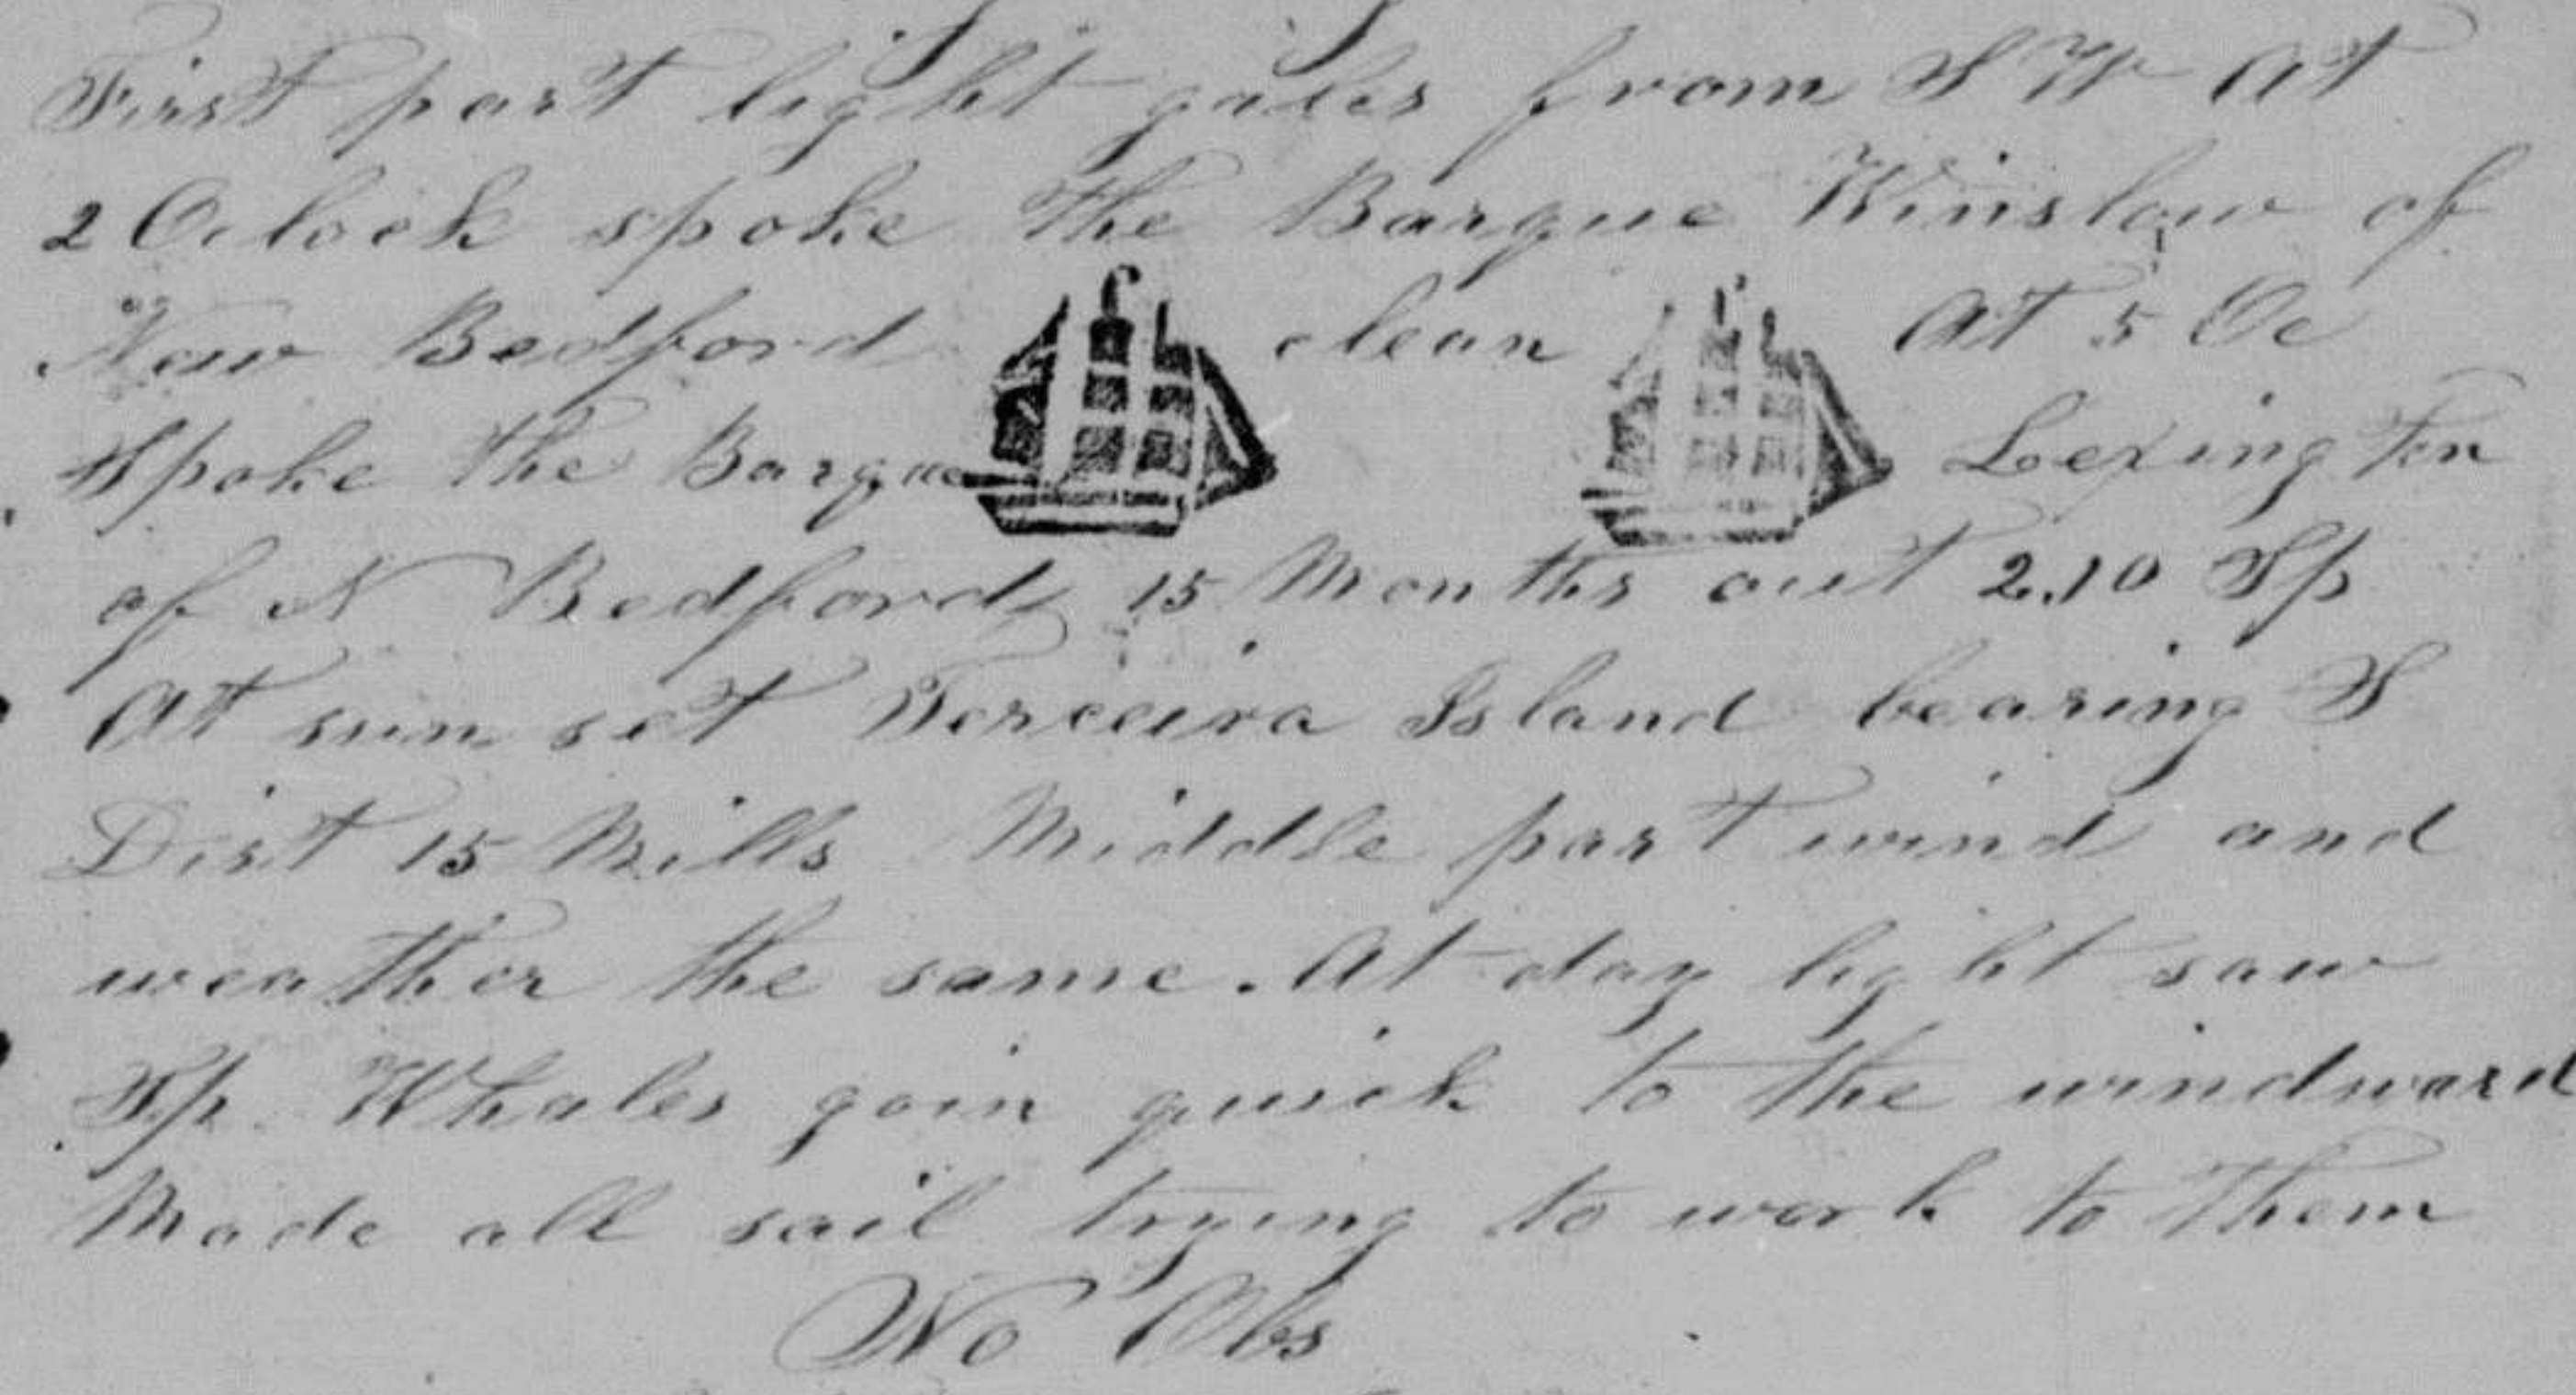 First part light gales from S W At
2 Oclock spoke the Barque Winslow of
New Bedford clean At 5 Oc
Spoke the Barque Lexington
of N Bedford 15 Months out 210 Sp
At sun set Terceira Island bearing S
Dist 15 Mills Middle part wind and
weather the same. At day light saw
Sp Whales goin quick to the windward
Made all sail trying to work to them
No Obs